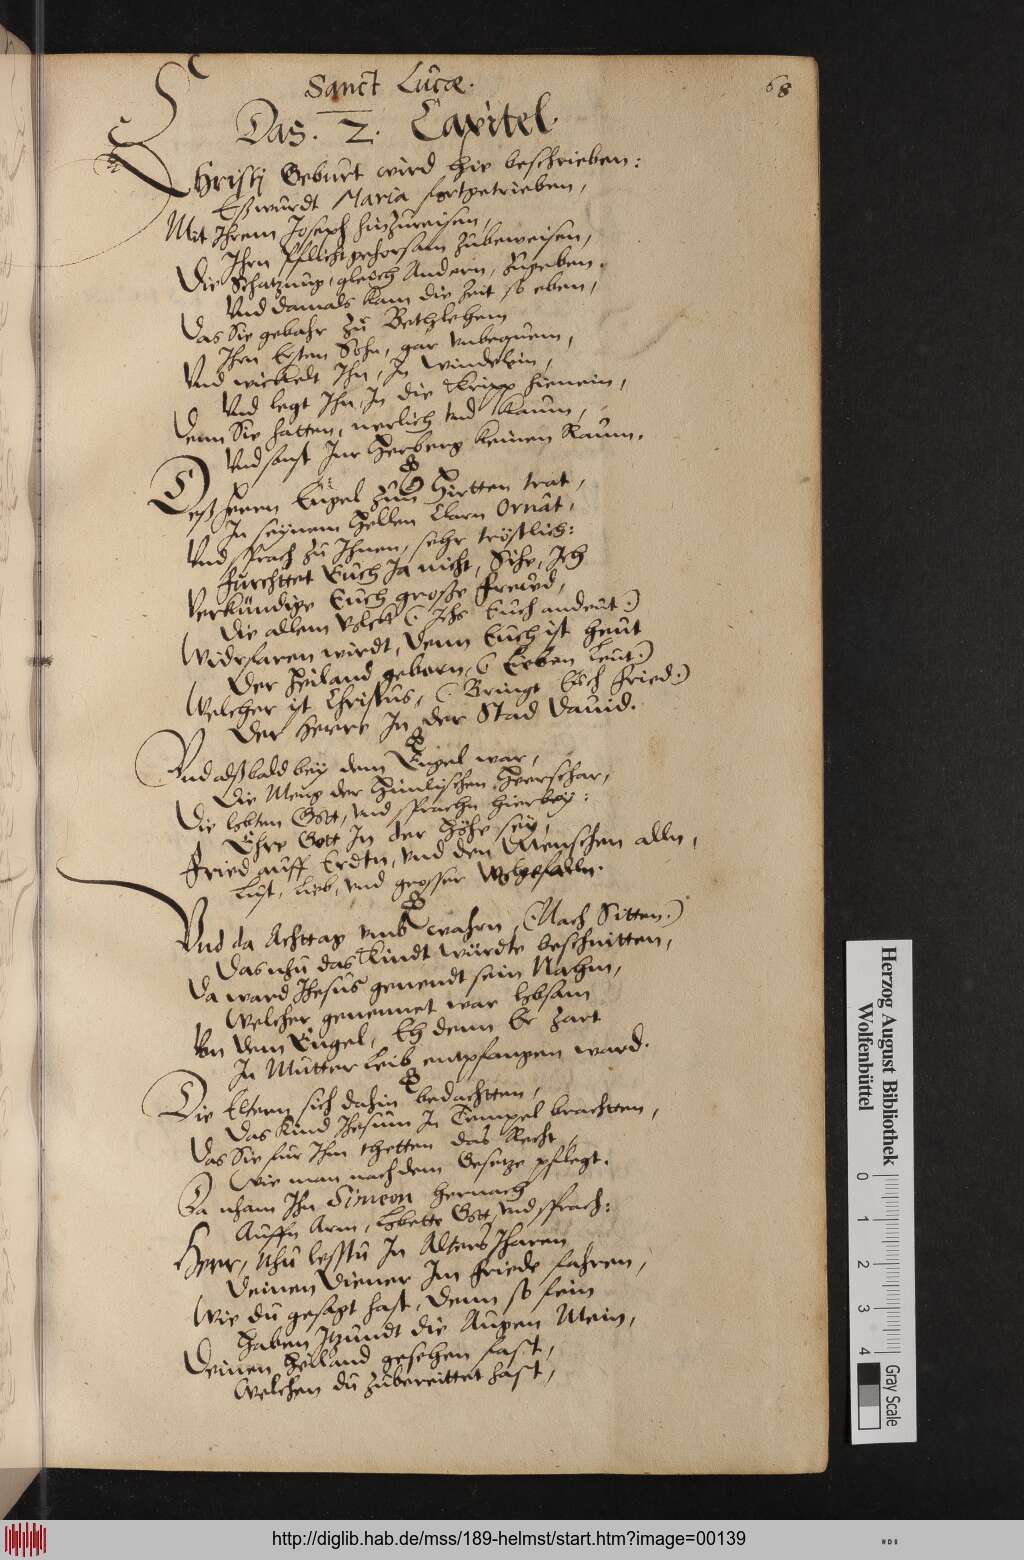 68
Sanct Lucæ.
Das. 2. Capitel.
Christj Geburt wird hie beschrieben:
Eß wurdt Maria fortgetrieben,
Mit Ihrem Joseph hinzureisen,
Ihrn Pflichtgehorsam zubeweisen,
Die Schatzung, gleich Andern, zugeben.
Vnd damals kam die Zeit so eben,
Das Sie gebahr zu Bethlehem
Ihrn Ersten Sohn, gar vnbequem,
Vnd wickelt Ihn, In windelein,
Vnd legt Ihn, In die Kripp hienein,
Denn Sie hatten, nerlich vnd kaum,
Vnd sonst Inn Herberg keinen Raum.
Deß Herrn Engel zun Hirtten trat,
In seynem Hellen Clarn Ornat,
Vnd sprach zu Ihnen, sehr tröstlich:
Furchttet Euch Ja nicht, Sihe, Ich
Verkündige Euch große Freud,
Die allem Volck (: Ichs Euch andeut :)
Widrfaren wirdt, Denn Euch ist heut
Der Heiland geborn, (: Lieben Leut :)
Welcher ist Christus, (: Bringt Euch Fried :)
Der Herre In der Stad Dauid.
Vnd alßbald bey dem Engel war,
Die Meng der Himlischen Heerschar,
Die lobten Gott, vnd sprachn hierbey:
Ehre Gott In der Höhe sey,
Fried auff Erdtn, vnd den Menschen alln,
Lust, Lieb, vnd grosser Wolgefalln.
Vnd da Achttag vmb wahrn (: Nach Sitten :)
Das nhu das Kindt würdte beschnitten,
Da ward Jhesus genendt sein Nahm,
Welcher genennet war lobsam
Von dem Engel, Eh denn Er zart
In Mutter Leib entpfangen ward.
Die Eltern sich dahin bedachtten,
Das Kind Jhesum In Tempel brachtten,
Das Sie für Ihm thetten das Recht,
Wie man nach dem Gesetze pflegt.
Da nham Ihn Simeon hernach
Auffn Arm, Lobette Gott, vnd sprach:
Herr, Nhu lesstu In Alters Jharen
Deinen Diener Im Friede fahren,
Wie du gesagt hast, Denn so fein
Haben Itzundt die Augen Mein,
Deinen Heiland gesehen fast,
Welchen du zubereittet hast,
Herzog August Bibliothek
Wolfenbüttel
0 1 2 3 4
Gray Scale
http://diglib.hab.de/mss/189-helmst/start.htm?image=00139